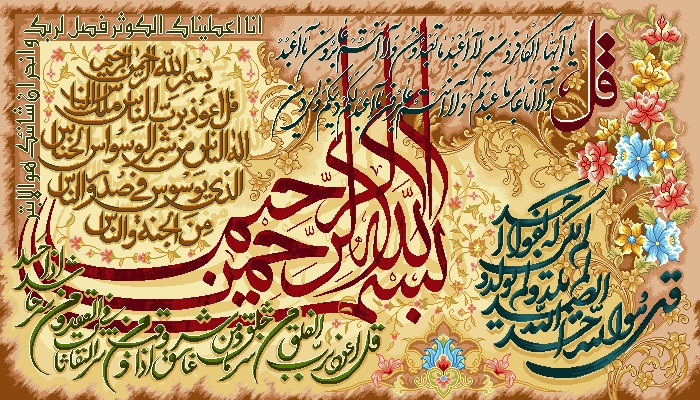 انا اعطيناك الكوثر فصل لربك
وانحر ان شانئك هو الابتر
قل يا أيها الكافرون لا أعبد ما تعبدون ولا أنتم عابدون ما أعبد
ولا أنا عابد ما عبدتم ولا أنتم عابدون ما أعبد لكم دينكم ولي دين
بسم الله الرحمن الرحيم
قل اعوذ برب الناس ملك الناس
اله الناس من شر الوسواس الخناس
الذي يوسوس في صدور الناس
من الجنة والناس
بسم الله الرحمن الرحيم
قل هو الله أحد الله الصمد لم يلد ولم يولد ولم يكن له كفوا أحد
قل اعوذ برب الفلق من شر ما خلق ومن شر غاسق اذا وقب ومن شر النفاثات في العقد ومن شر حاسد اذا حسد